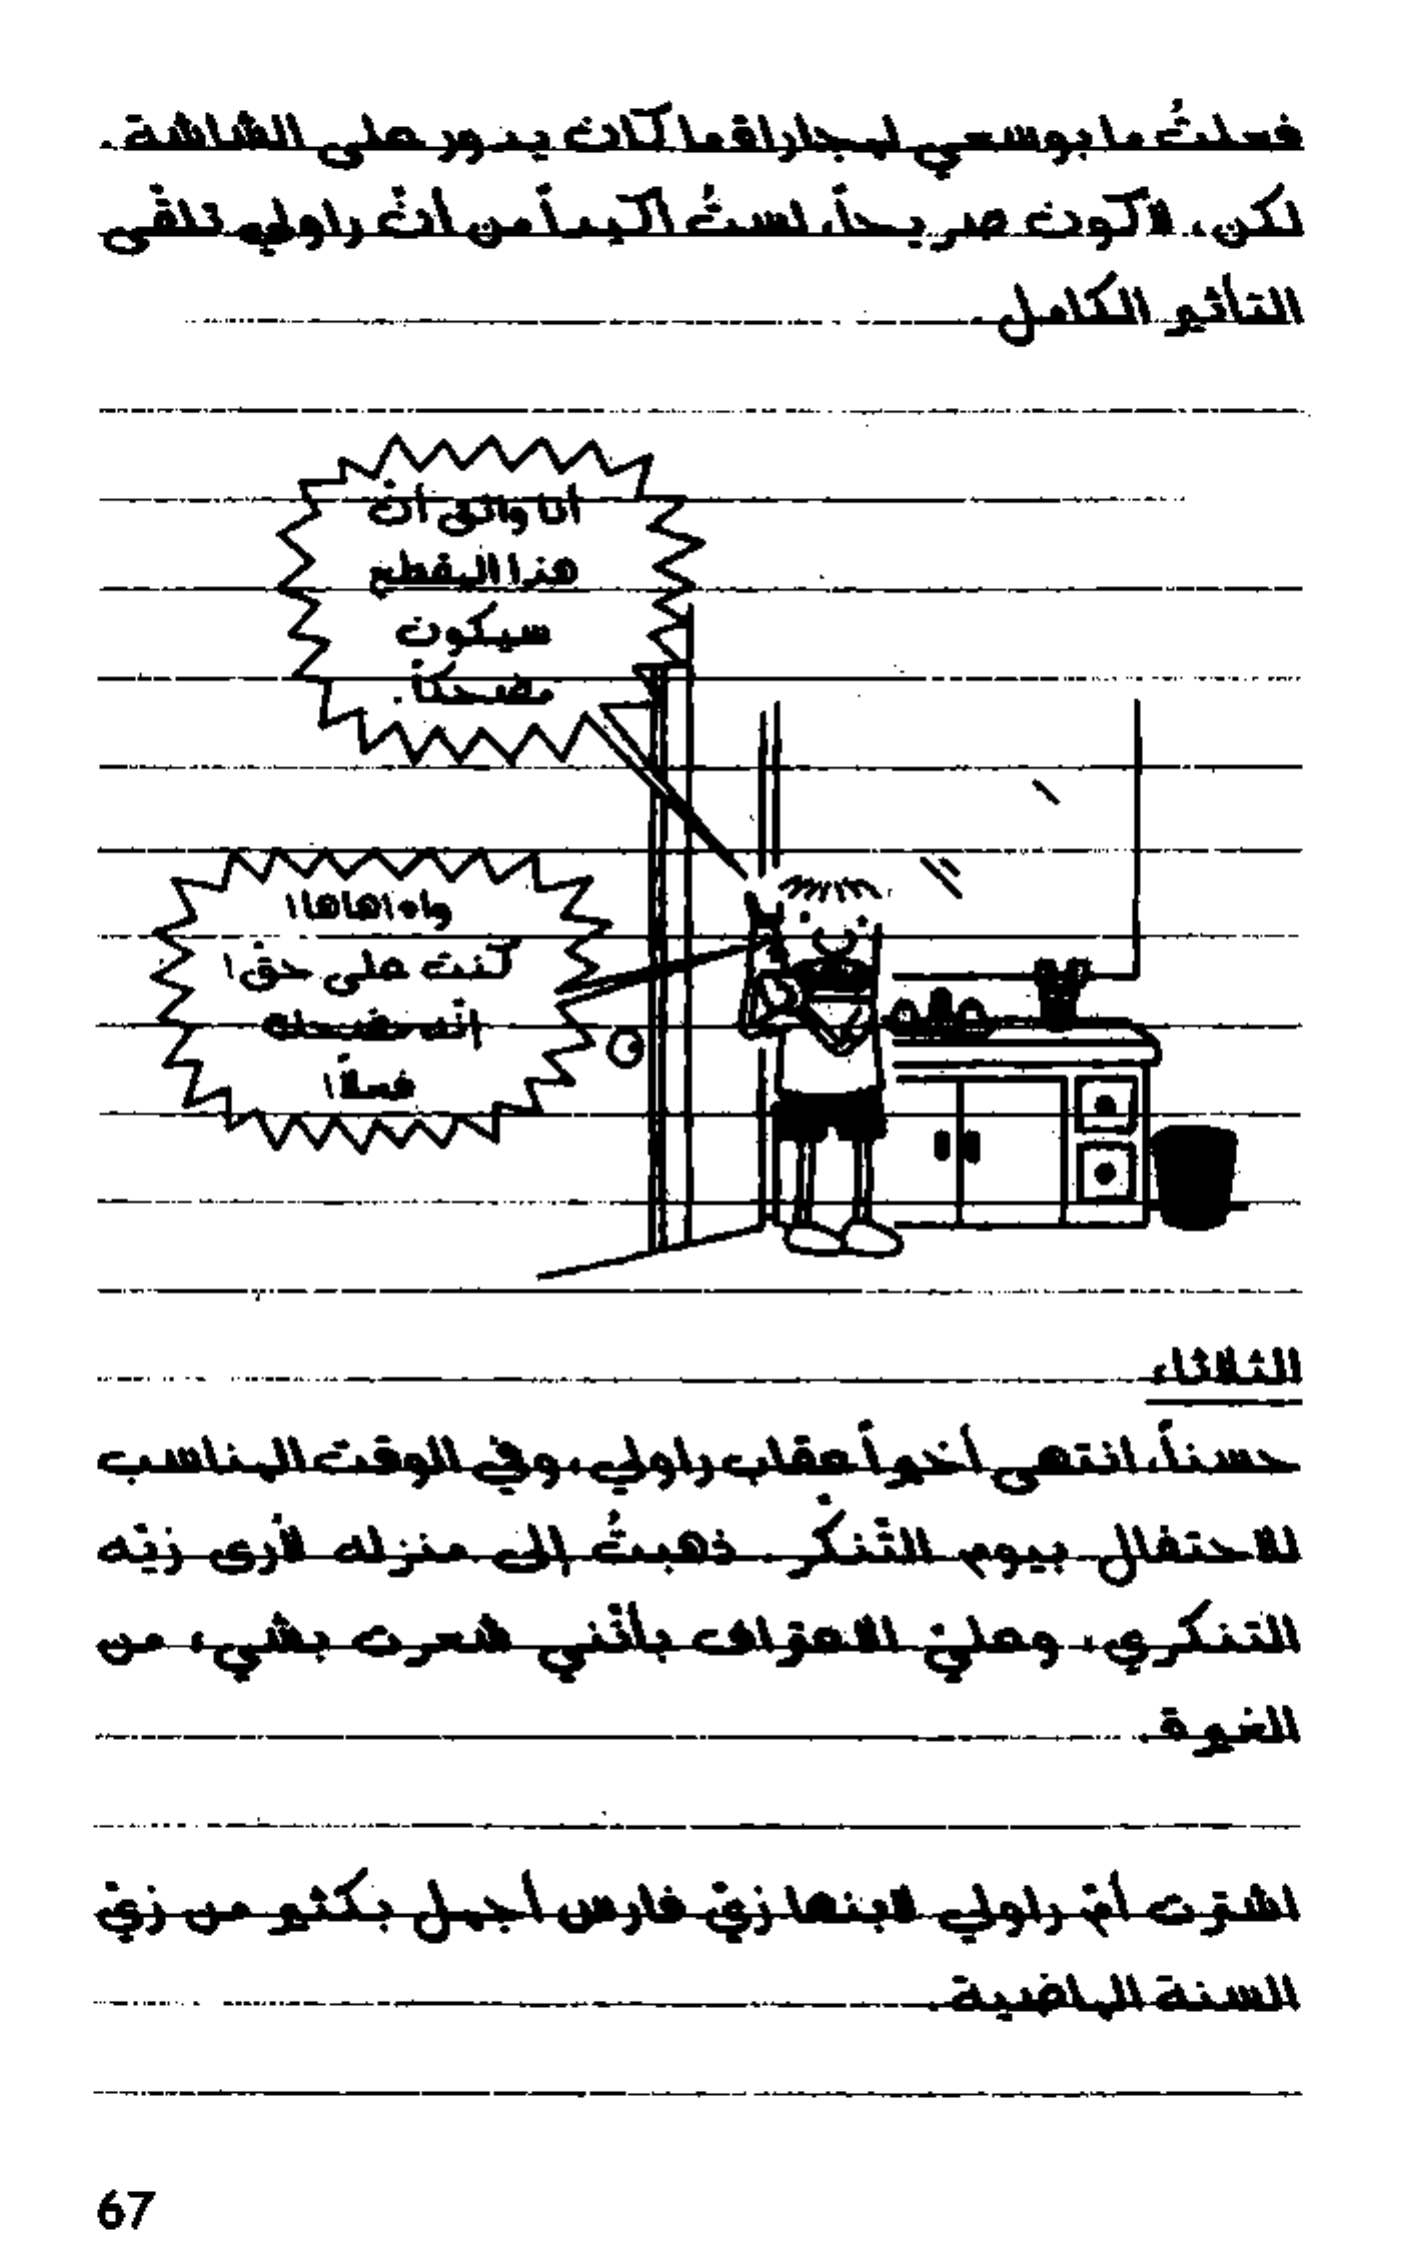 فعلتُ ما بوسعي لمجاراة ما كان يدور على الشاشة.
لكن، لأكون صريحاً، لستُ أكيداً من أنّ راولي تلقّى
التأثير الكامل.
أنا واثق أنّ
هذا المقطع
سيكون
مضحكاً.
واهاهاها!
كنت على حقّ!
إنّه مضحك
فعلاً!
الثلاثاء
حسناً، انتهى أخيراً عقاب راولي، وفي الوقت المناسب
للاحتفال بيوم التّنكّر. ذهبتُ إلى منزله لأرى زيّه
التنكري، وعليّ الاعتراف بأنّني شعرت بشيء من
الغيرة.
اشترت أمّ راولي لابنها زيّ فارس أجمل بكثير من زيّ
السنة الماضية.
67